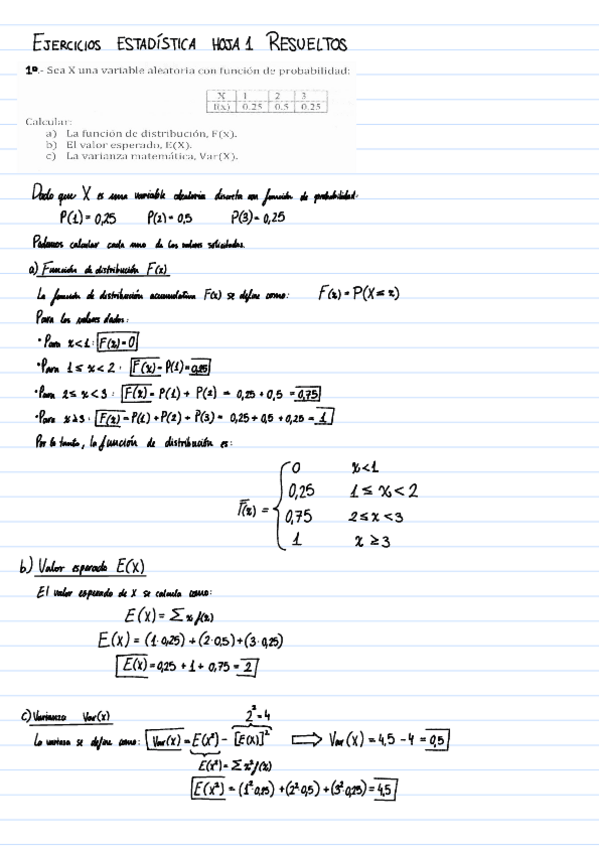 EJERCICIOS ESTADÍSTICA HOJA 1 RESUELTOS
1º.- Sea X una variable aleatoria con función de probabilidad:
X 1 2 3
f(x) 0.25 0.5 0.25
Calcular:
a) La función de distribución, F(x).
b) El valor esperado, E(X).
c) La varianza matemática, Var(X).
Dado que X es una variable aleatoria discreta con función de probabilidad:
P(1) = 0,25 P(2) = 0,5 P(3) = 0,25
Podemos calcular cada uno de los valores solicitados.
a) Función de distribución F(x)
La función de distribución acumulativa F(x) se define como: F(x) = P(X ≤ x)
Para los valores dados:
· Para x < 1 : F(x) = 0
· Para 1 ≤ x < 2 : F(x) = P(1) = 0,25
· Para 2 ≤ x < 3 : F(x) = P(1) + P(2) = 0,25 + 0,5 = 0,75
· Para x ≥ 3 : F(x) = P(1) + P(2) + P(3) = 0,25 + 0,5 + 0,25 = 1
Por lo tanto, la función de distribución es:
F(x) = { 0 x < 1
0,25 1 ≤ x < 2
0,75 2 ≤ x < 3
1 x ≥ 3
b) Valor esperado E(X)
El valor esperado de X se calcula como:
E(X) = Σ x f(x)
E(X) = (1·0,25) + (2·0,5) + (3·0,25)
E(X) = 0,25 + 1 + 0,75 = 2
c) Varianza Var(X)
2² = 4
La varianza se define como: Var(X) = E(X²) - [E(X)]² ⇒ Var(X) = 4,5 - 4 = 0,5
E(X²) = Σ x² f(x)
E(X²) = (1²·0,25) + (2²·0,5) + (3²·0,25) = 4,5